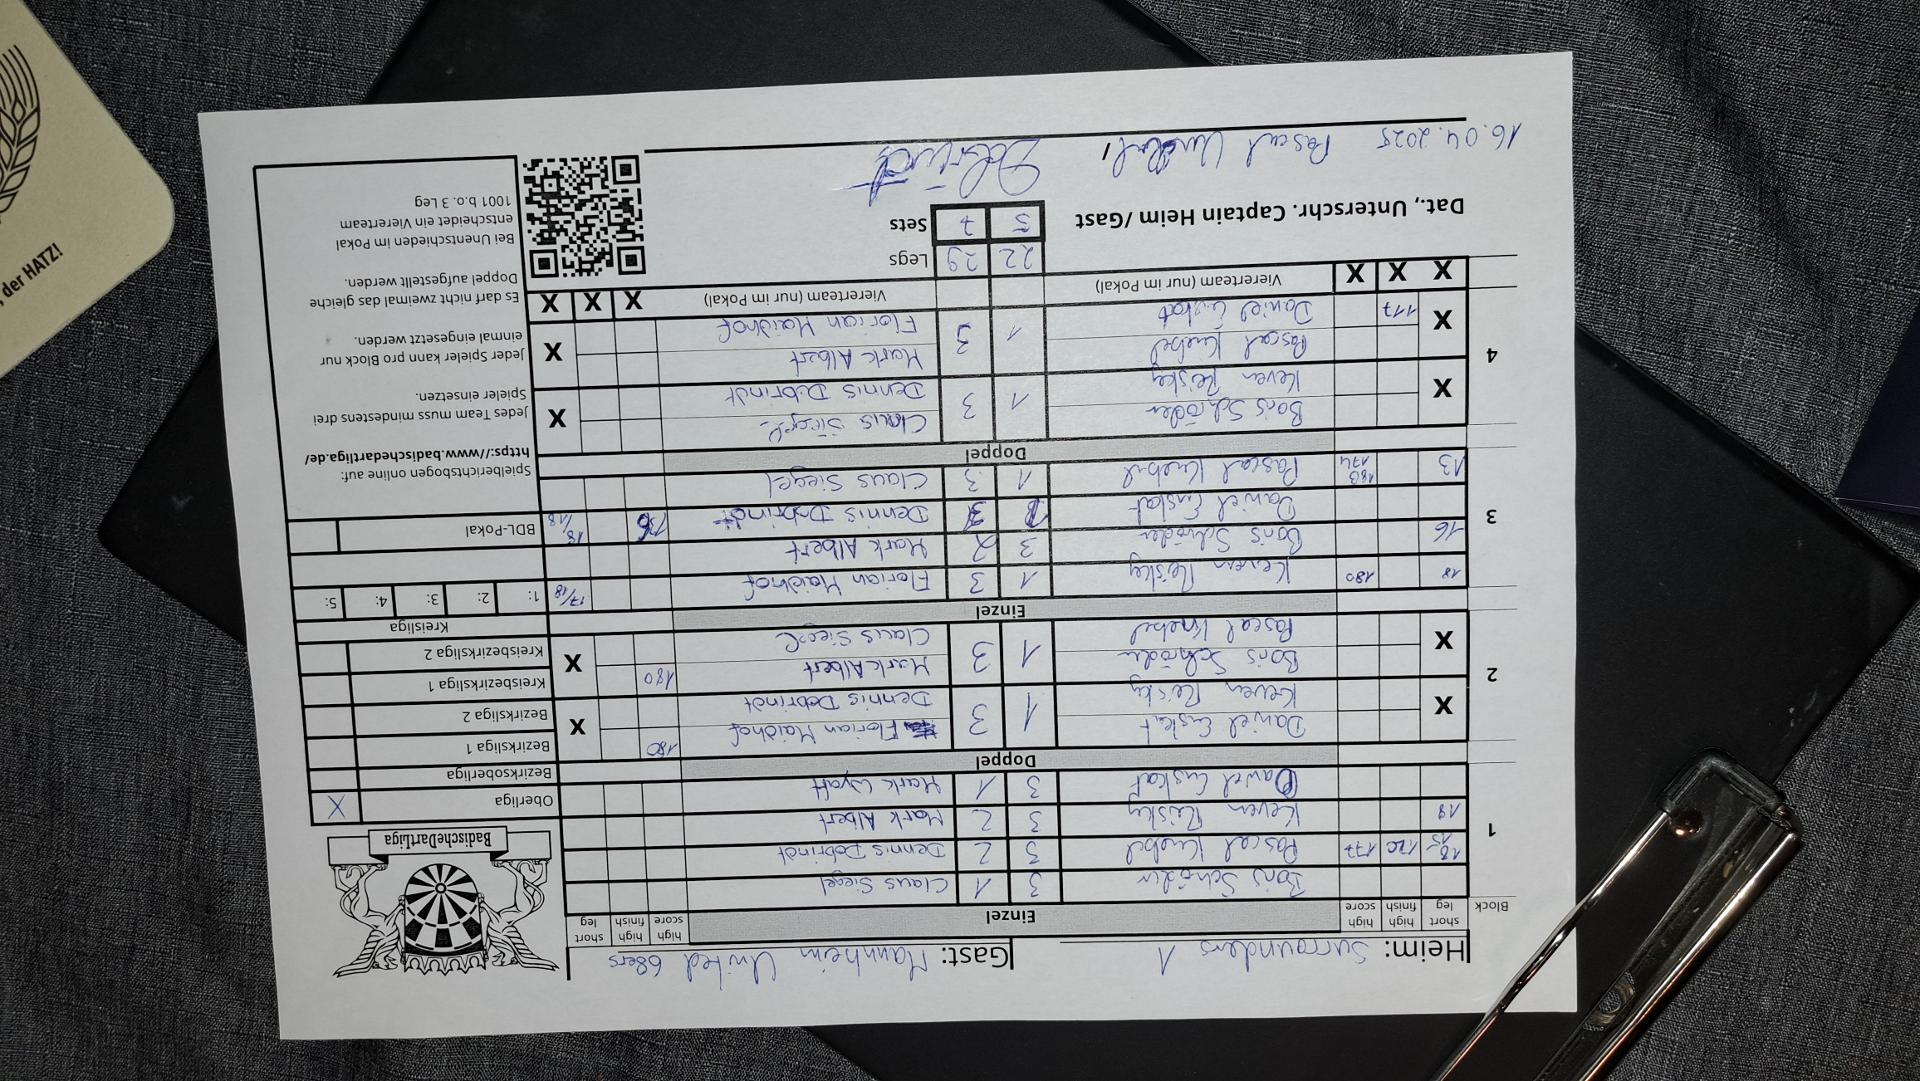 Heim: Surrounders 1 Gast: Mannheim United 68ers
Block short leg high finish high score Einzel high score high finish short leg
1
Boris Schröder 3 1 Claus Siegel
18 15 120 177 Pascal Knebel 3 2 Dennis Dobrindt
18 Keven Reisky 3 2 Mark Albert
Daniel Enskat 3 1 Mark Wyatt
Doppel
2
X Daniel Enskat 1 3 Florian Maidhof 180 X
Keven Reisky Dennis Dobrindt
X Boris Schröder 1 3 Mark Albert 180 X
Pascal Knebel Claus Siegel
Einzel
3
18 180 Keven Reisky 1 3 Florian Maidhof 17/18
16 Boris Schröder 3 2 Mark Albert
Daniel Enskat Dennis Dobrindt 18/18
13 180 174 Pascal Knebel 1 3 Claus Siegel
Doppel
4
X Boris Schröder 1 3 Claus Siegel X
Keven Reisky Dennis Dobrindt
X Pascal Knebel 1 3 Mark Albert X
117 Daniel Enskat Florian Maidhof
X X X Viererteam (nur im Pokal) Viererteam (nur im Pokal) X X X
22 29 Legs
5 7 Sets
Dat., Unterschr. Captain Heim / Gast
16.04.2025 Pascal Knebel, Dobrindt
BadischeDartLiga
Oberliga X
Bezirksoberliga
Bezirksliga 1
Bezirksliga 2
Kreisbezirksliga 1
Kreisbezirksliga 2
Kreisliga
1: 2: 3: 4: 5:
BDL-Pokal
Spielberichtsbogen online auf:
https://www.badischedartliga.de/
Jedes Team muss mindestens drei
Spieler einsetzen.
Jeder Spieler kann pro Block nur
einmal eingesetzt werden.
Es darf nicht zweimal das gleiche
Doppel aufgestellt werden.
Bei Unentschieden im Pokal
entscheidet ein Viererteam
1001 b.o. 3 Leg
der HATZ!